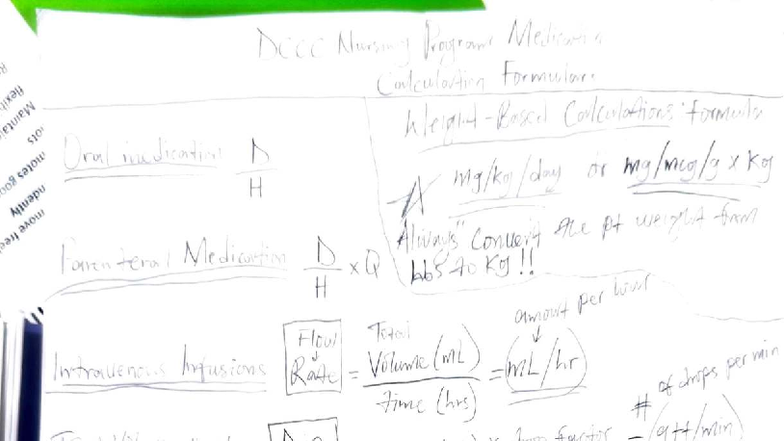 DCCC Nursing Program Medication
Calculation Formulas
Oral medication D
H
Weight-Based Calculations formula
mg/kg/day or mg/mcg/g x Kg
Always convert the pt weight from
lbs to Kg!!
Parenteral Medication D/H x Q
Intravenous Infusions Flow Rate = Total Volume (mL) / Time (hrs) = mL/hr
amount per hour
# of drops per min
factor = (gtt/min)
Maintai
notes goo
ndently
move freel